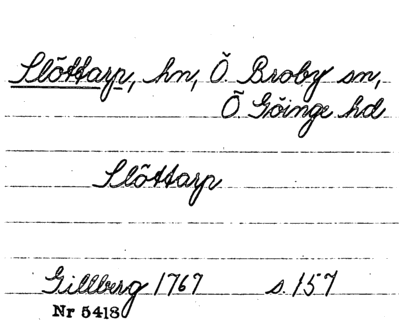 Slöttarp, hn, Ö. Broby sn,
Ö Göinge hd
Slöttarp
Gillberg 1767 s. 157
Nr 5418